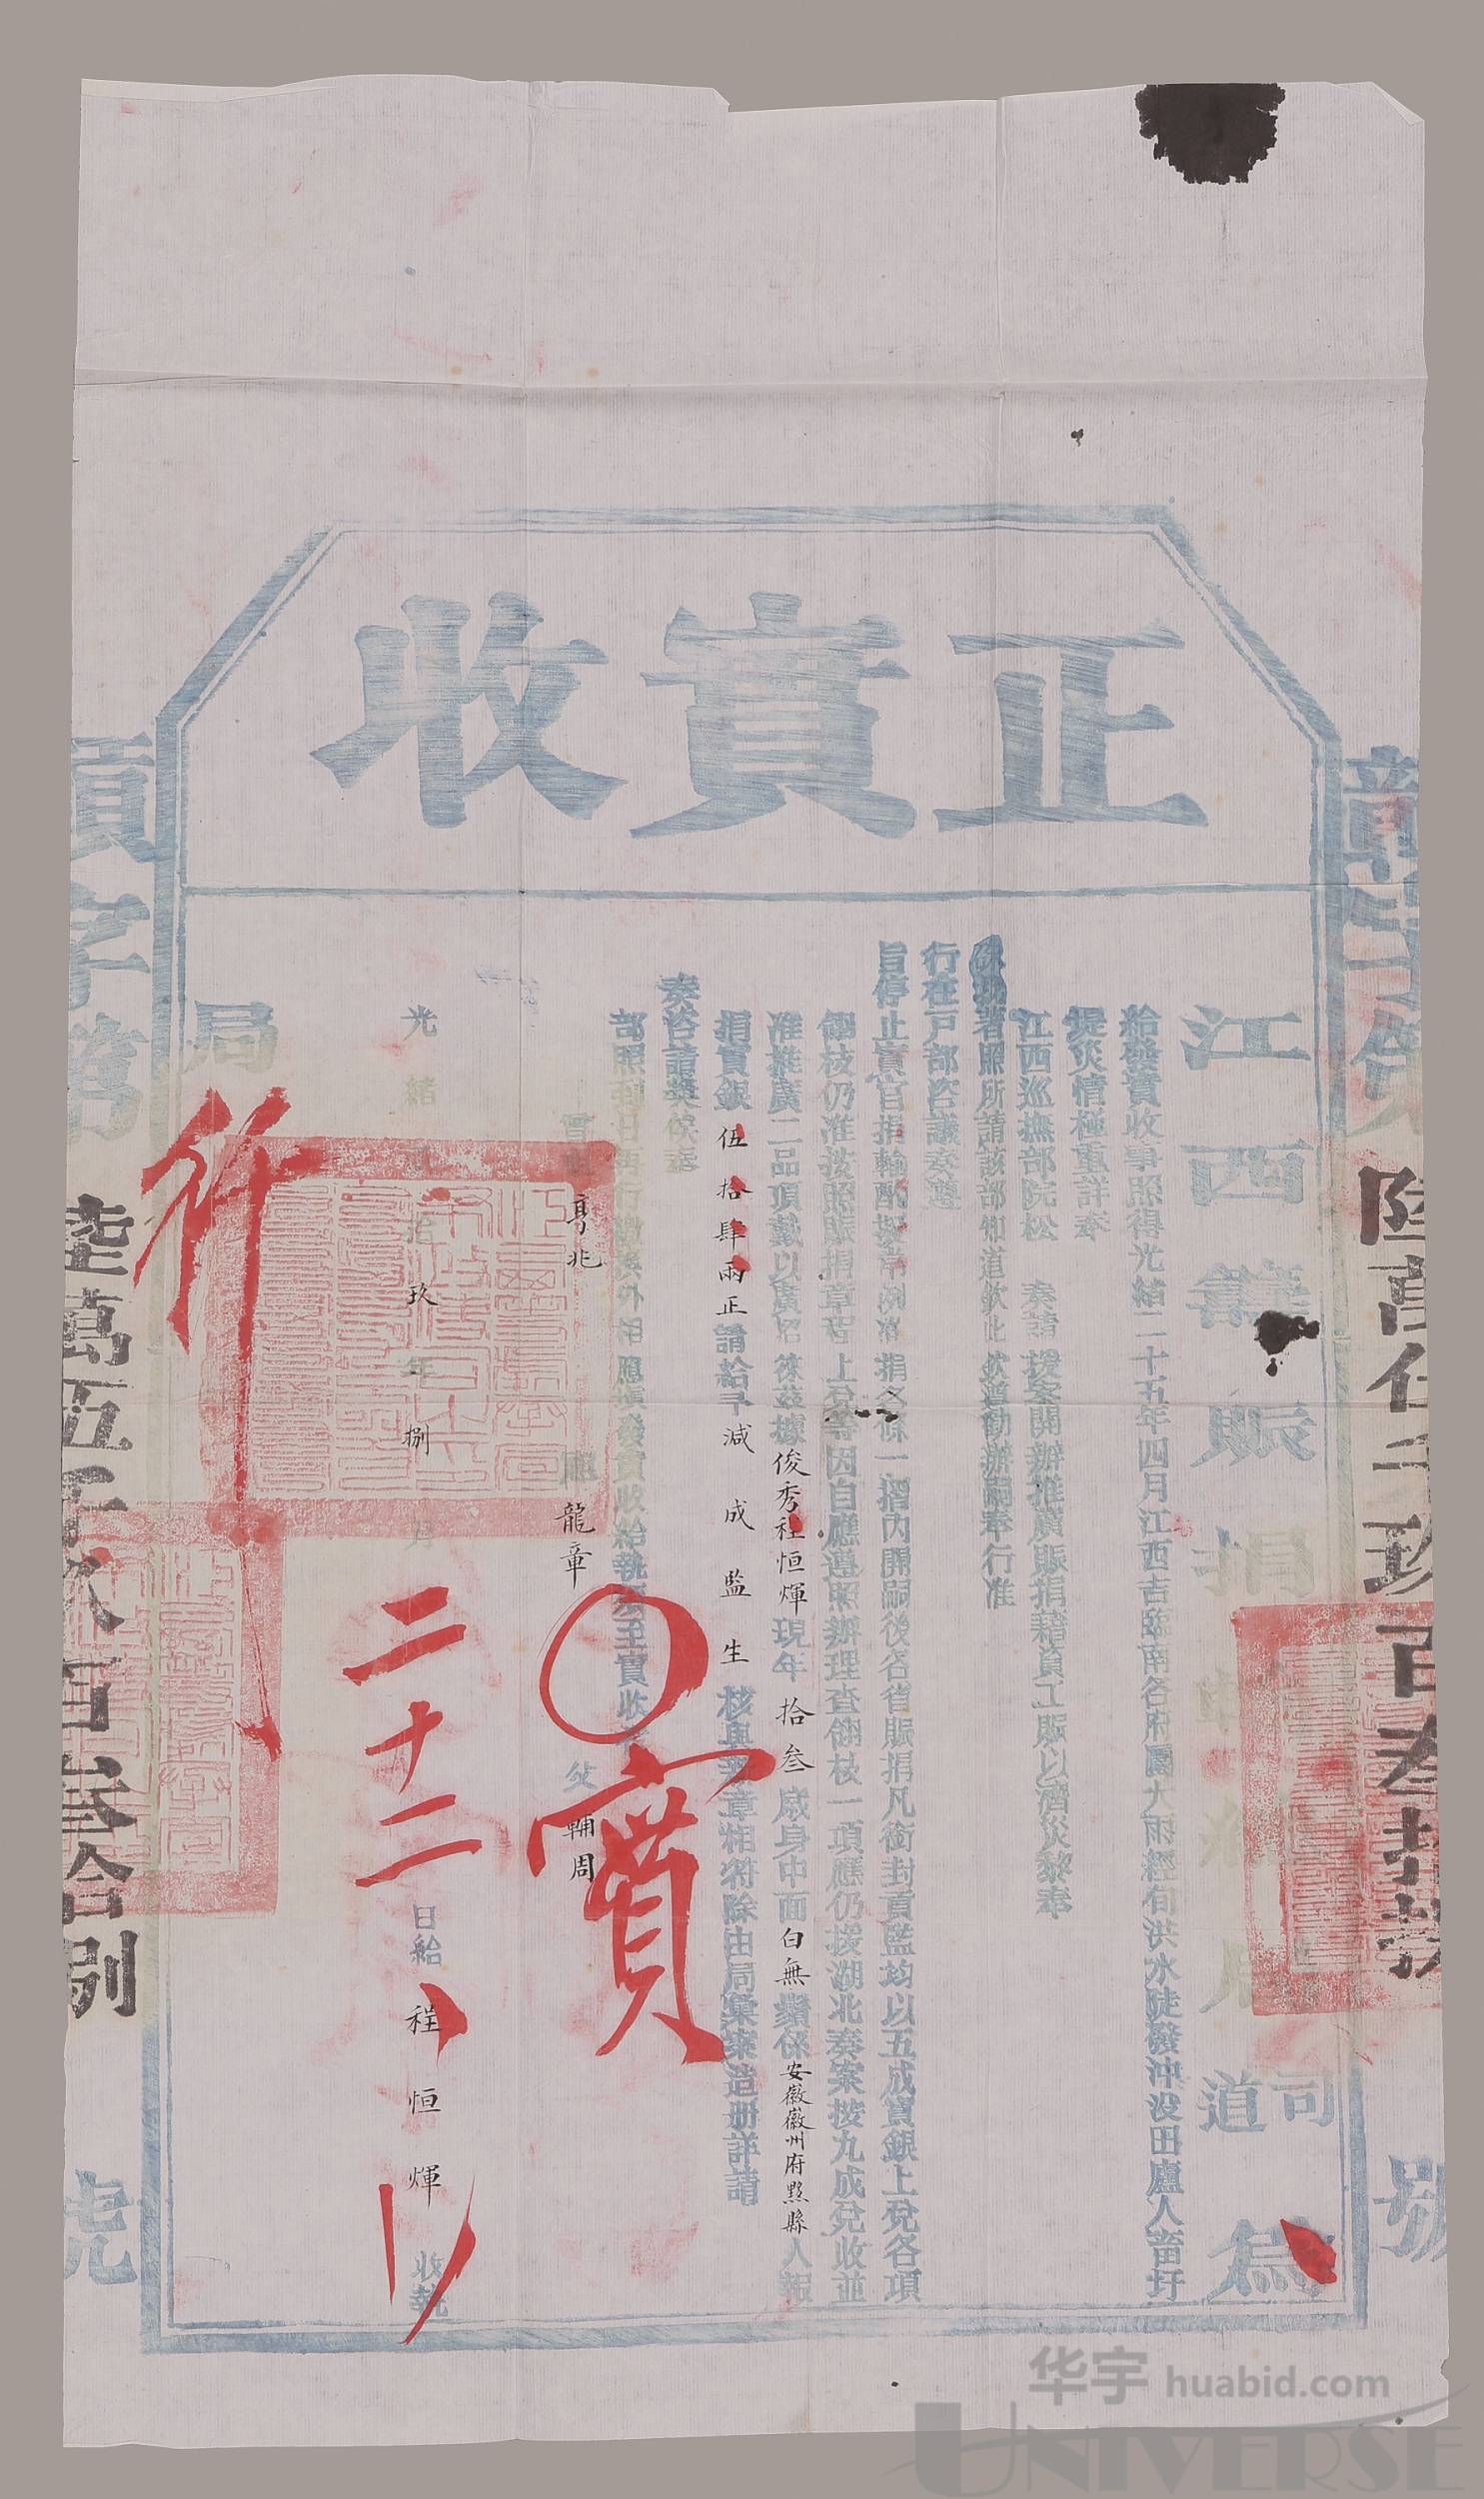 正實收
江西籌賑捐
司
道
為
給發實收事照得光緒二十五年四月江西吉臨南各府屬大雨經旬洪水陡發沖沒田廬人畜圩
堤災情極重詳奉
江西巡撫部院松 奏請援案開辦推廣賑捐藉資工賑以濟災黎奉
硃批著照所請該部知道欽此欽遵勸辦嗣奉行准
行在戶部咨議奏遵
旨停止實官捐輸酌擬常例准捐各條一摺內開嗣後各省賑捐凡銜封貢監均以五成實銀上兌各項
翎枝仍准按照賑捐章程上兌等因自應遵照辦理查翎枝一項應仍援湖北奏案按九成兌收並
准推廣二品頂戴以廣招徠茲據俊秀程恒煇現年拾叁歲身中面白無鬚係安徽徽州府黟縣人報
捐實銀伍拾肆兩正請給予減成監生核與新章相符除由局彙案造冊詳請
奏咨請獎俟奉
部照到日再行繳換外相應填發實收給執須至實收
曾祖 亨兆 祖 龍章 父 輔周
實
光緒 拾玖年捌月二十二日給程恒煇收執
局
行
章字第陸萬伍千玖百叁拾捌號
須字第陸萬伍千玖百叁拾捌號
华宇 huabid.com
UNIVERSE